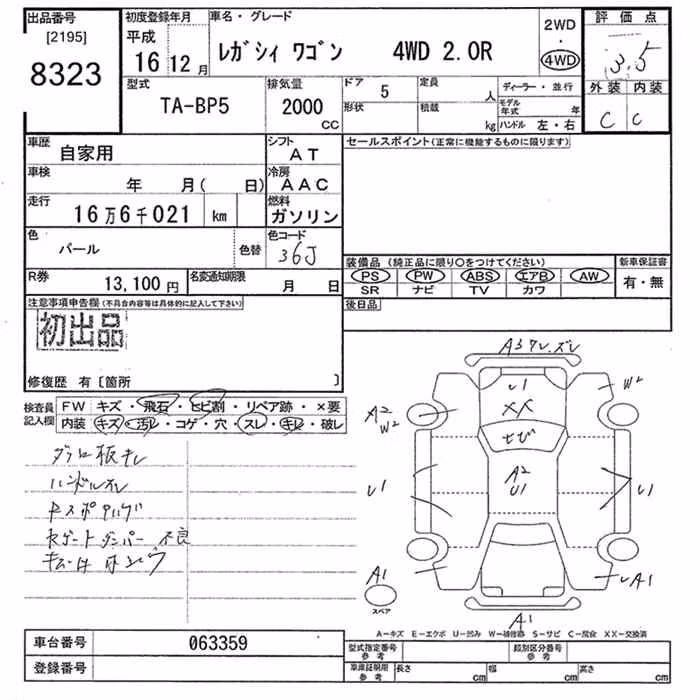 出品番号
[2195]
8323
初度登録年月
平成
16 12 月
車名・グレード
レガシィ ワゴン 4WD 2.0R
2WD
・
4WD
評価点
3.5
外装 内装
C C
型式
TA-BP5
排気量
2000
CC
ドア 5
形状
定員 人
積載 kg
ディーラー・並行
モデル年式 年
ハンドル 左・右
車歴
自家用
シフト
AT
車検
年 月( 日)
冷房
AAC
走行
16万6千021 km
燃料
ガソリン
色
パール
色替
色コード
36J
R券
13,100 円
名変通知期限
月 日
セールスポイント(正常に機能するものに限ります)
装備品 (純正品に限り○をつけてください)
PS PW ABS エアB AW
SR ナビ TV カワ
新車保証書
有・無
後日品
注意事項申告欄(不具合内容等は具体的に記入して下さい)
初出品
修復歴 有[箇所 ]
検査員記入欄
FW キズ・飛石・ヒビ割・リペア跡・×要
内装 キズ・汚レ・コゲ・穴・スレ・キレ・破レ
ハンドルスレ
A3ワレ.ズレ
U1
XX
ヒビ
A2
U1
W2
A2
W2
U1
U1
A1
スペア
A1
A1
A-キズ E-エクボ U-凹み W-補修跡 S-サビ C-腐食 XX-交換済
車台番号
063359
登録番号
型式指定番号
参考
類別区分番号
参考
車庫証明用
参考
長さ cm
幅 cm
高さ cm